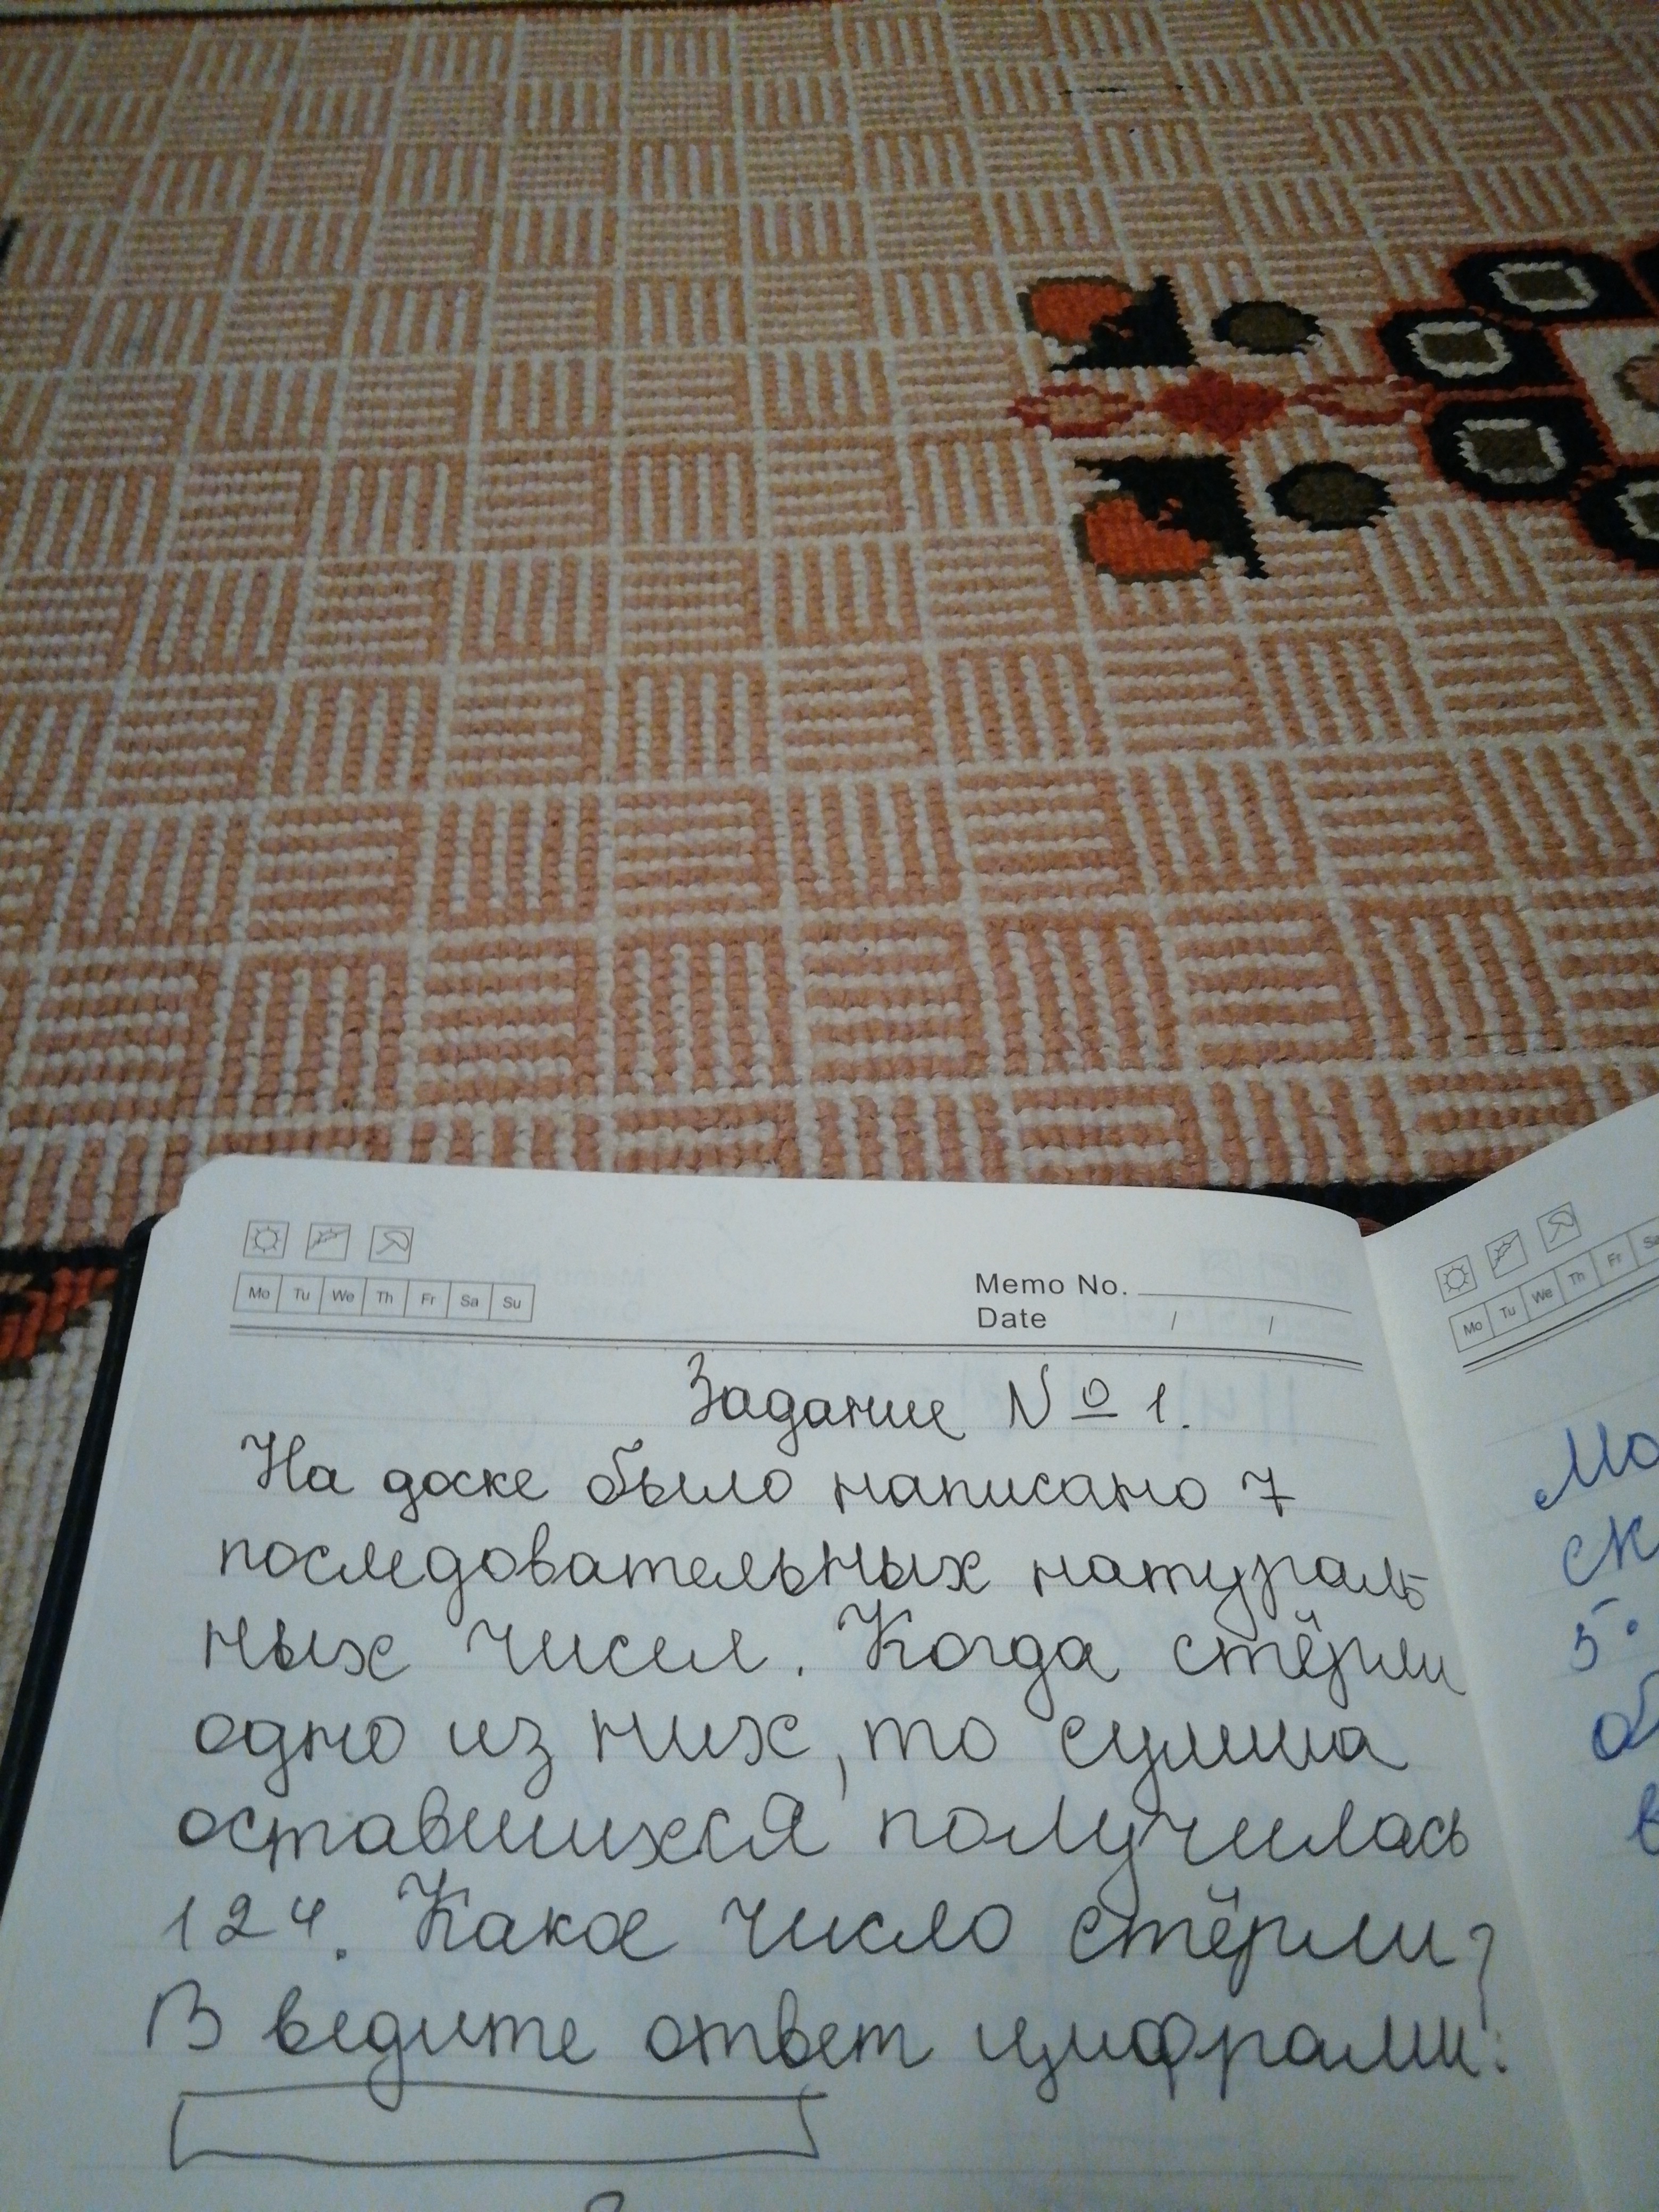 Mo Tu We Th Fr Sa Su
Memo No.
Date / /
Задание № 1.
На доске было написано 7
последовательных натураль
ных чисел. Когда стёрли
одно из них, то сумма
оставшихся получилась
124. Какое число стёрли?
Введите ответ цифрами:
Mo Tu We Th Fr
5.